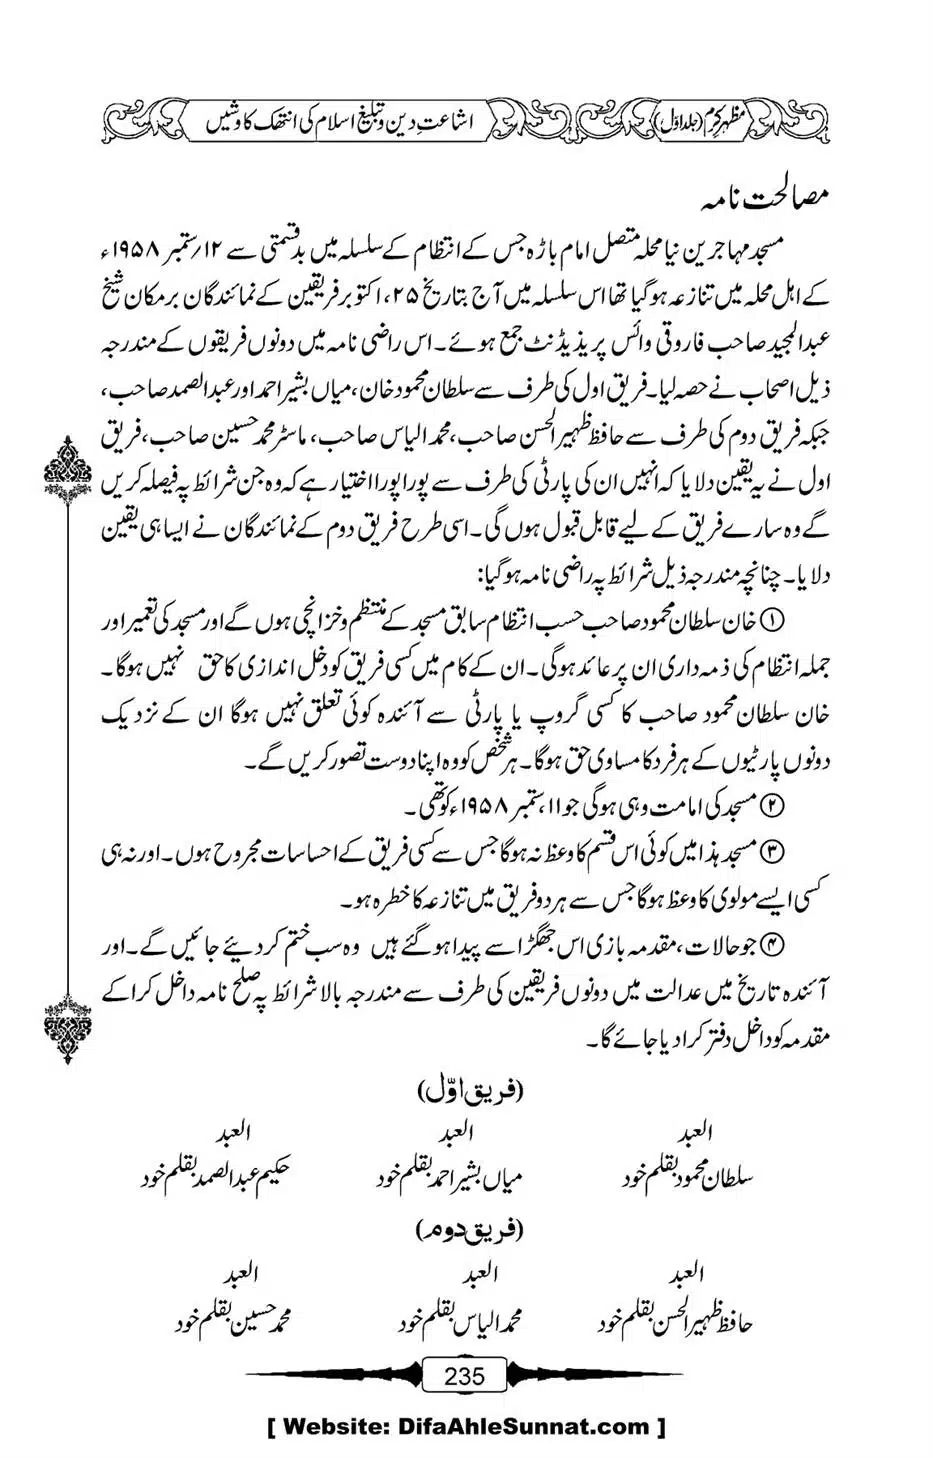 مظہر کرم (جلد اوّل)
اشاعتِ دین و تبلیغ اسلام کی انتھک کاوشیں
مصالحت نامہ
مسجد مہاجرین نیا محلہ متصل امام باڑہ جس کے انتظام کے سلسلہ میں بدقسمتی سے ۱۲؍ستمبر ۱۹۵۸ء
کے اہل محلہ میں تنازعہ ہوگیا تھا اس سلسلہ میں آج بتاریخ ۲۵، اکتوبر فریقین کے نمائندگان بر مکان شیخ
عبدالمجید صاحب فاروقی وائس پریذیڈنٹ جمع ہوئے۔ اس راضی نامہ میں دونوں فریقوں کے مندرجہ
ذیل اصحاب نے حصہ لیا۔ فریق اول کی طرف سے سلطان محمود خان، میاں بشیر احمد اور عبدالصمد صاحب،
جبکہ فریق دوم کی طرف سے حافظ ظہیر الحسن صاحب، محمد الیاس صاحب، ماسٹر محمد حسین صاحب، فریق
اول نے یہ یقین دلایا کہ انہیں ان کی پارٹی کی طرف سے پورا پورا اختیار ہے کہ وہ جن شرائط پہ فیصلہ کریں
گے وہ سارے فریق کے لیے قابل قبول ہوں گی۔ اسی طرح فریق دوم کے نمائندگان نے ایسا ہی یقین
دلایا۔ چنانچہ مندرجہ ذیل شرائط پہ راضی نامہ ہوگیا:
① خان سلطان محمود صاحب حسب انتظام سابق مسجد کے منتظم و خزانچی ہوں گے اور مسجد کی تعمیر اور
جملہ انتظام کی ذمہ داری ان پر عائد ہوگی۔ ان کے کام میں کسی فریق کو دخل اندازی کا حق نہیں ہوگا۔
خان سلطان محمود صاحب کا کسی گروپ یا پارٹی سے آئندہ کوئی تعلق نہیں ہوگا ان کے نزدیک
دونوں پارٹیوں کے ہر فرد کا مساوی حق ہوگا۔ ہر شخص کو وہ اپنا دوست تصور کریں گے۔
② مسجد کی امامت وہی ہوگی جو ۱۱، ستمبر ۱۹۵۸ء کو تھی۔
③ مسجد ہذا میں کوئی اس قسم کا وعظ نہ ہوگا جس سے کسی فریق کے احساسات مجروح ہوں۔ اور نہ ہی
کسی ایسے مولوی کا وعظ ہوگا جس سے ہر دو فریق میں تنازعہ کا خطرہ ہو۔
④ جو حالات، مقدمہ بازی اس جھگڑا سے پیدا ہوگئے ہیں وہ سب ختم کر دیئے جائیں گے۔ اور
آئندہ تاریخ میں عدالت میں دونوں فریقین کی طرف سے مندرجہ بالا شرائط پہ صلح نامہ داخل کرا کے
مقدمہ کو داخل دفتر کرا دیا جائے گا۔
(فریق اوّل)
العبد العبد العبد
سلطان محمود بقلم خود میاں بشیر احمد بقلم خود حکیم عبدالصمد بقلم خود
(فریق دوم)
العبد العبد العبد
حافظ ظہیر الحسن بقلم خود محمد الیاس بقلم خود محمد حسین بقلم خود
235
[ Website: DifaAhleSunnat.com ]